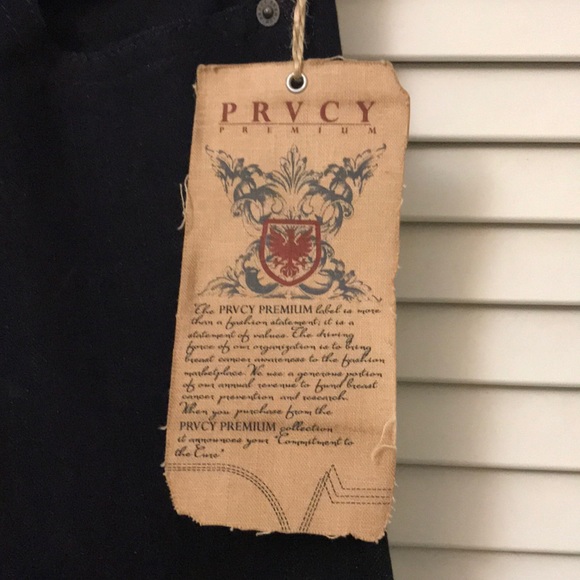 PRVCY
PREMIUM
The PRVCY PREMIUM label is more
than a fashion statement; it is a
statement of values. The driving
force of our organization is to bring
breast cancer awareness to the fashion
marketplace. We use a generous portion
of our annual revenue to fund breast
cancer prevention and research.
When you purchase from the
PRVCY PREMIUM collection
it announces your "Commitment to
the Cure"